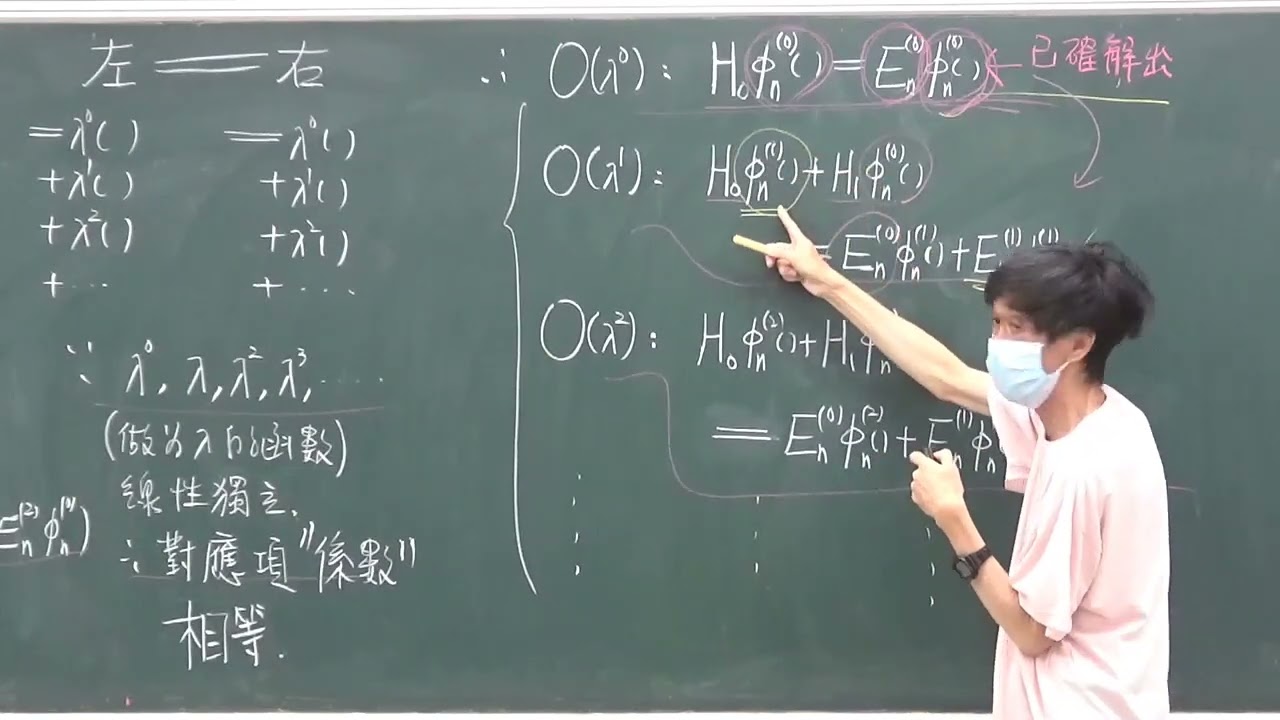 左 = 右
= λ⁰( )
+ λ¹( )
+ λ²( )
+ ...
= λ⁰( )
+ λ¹( )
+ λ²( )
+ ....
∵ λ⁰, λ, λ², λ³, .....
(做為λ的函數)
線性獨立.
∴ 對應項"係數"
相等.
Eₙ⁽²⁾ φₙ⁽⁰⁾)
∴ O(λ⁰): H₀φₙ⁽⁰⁾() = Eₙ⁽⁰⁾φₙ⁽⁰⁾() ← 已確解出
O(λ¹): H₀φₙ⁽¹⁾() + H₁φₙ⁽⁰⁾()
= Eₙ⁽⁰⁾φₙ⁽¹⁾() + E
O(λ²): H₀φₙ⁽²⁾() + H₁φₙ
= Eₙ⁽⁰⁾φₙ⁽²⁾() + Eₙ⁽¹⁾φₙ